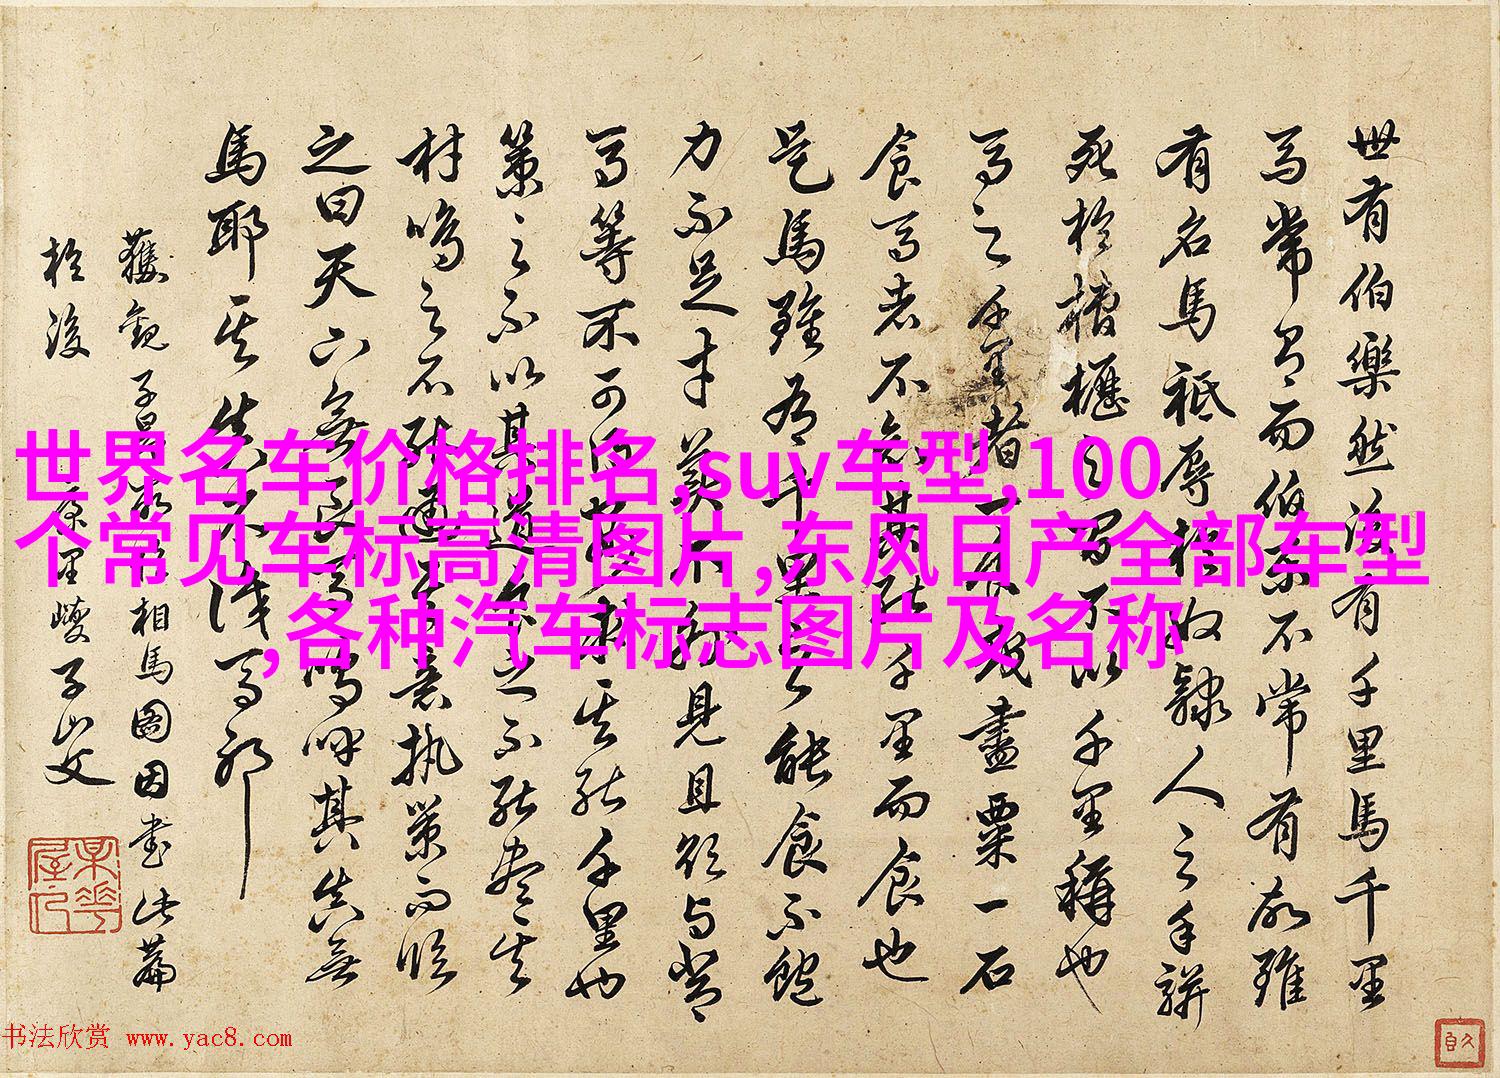 世有伯樂然後有千里馬千里
馬常有而伯樂不常有故雖
有名馬祗辱於奴隸人之手駢
死於槽櫪之間不以千里稱也
馬之千里者一食或盡粟一石
食馬者不知其能千里而食也
是馬雖有千里之能食不飽
力不足才美不外見且欲與常
馬等不可得安求其能千里也
策之不以其道食之不能盡其
材鳴之不能通其意執策而臨
之曰天下無良馬嗚呼其真無
馬耶其真不識馬耶
獲觀子昂所相馬圖因書此篇
於後 康里巎子山父
世界名车价格排名,suv车型,100
个常见车标高清图片,东风日产全部车型
,各种汽车标志图片及名称
书法欣赏 www.yac8.com